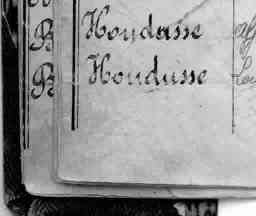 Houdasse
Houdusse